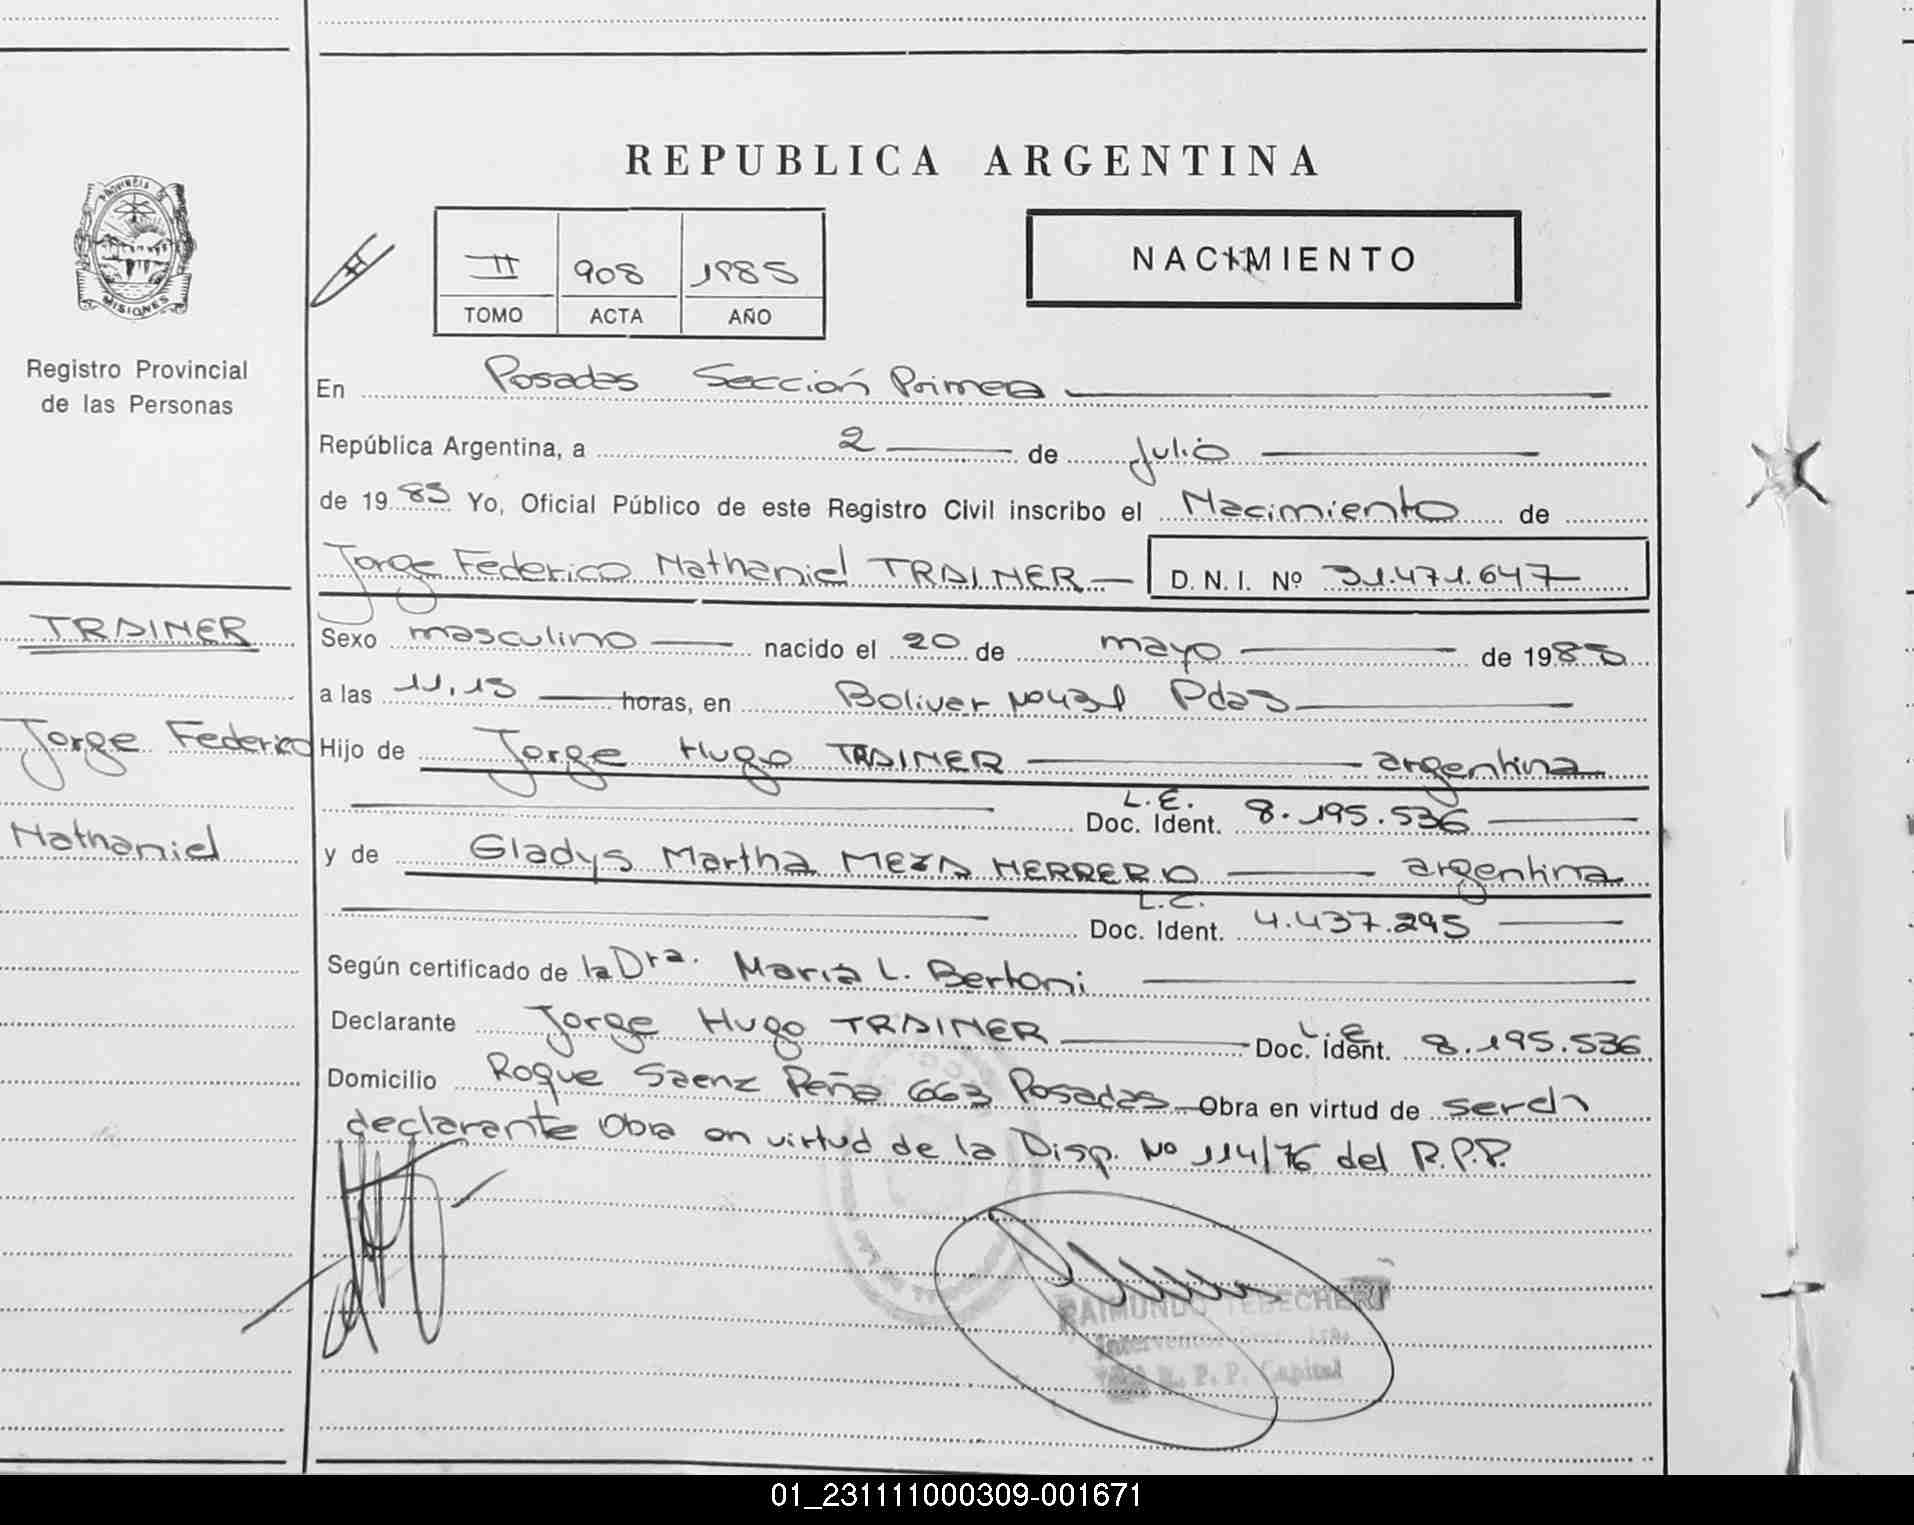 REPUBLICA ARGENTINA
PROVINCIA DE
MISIONES
Registro Provincial
de las Personas
II 908 1985
TOMO ACTA AÑO
NACIMIENTO
En Posadas Sección Primera
República Argentina, a 2 de Julio
de 1985 Yo, Oficial Público de este Registro Civil inscribo el Nacimiento de
Jorge Federico Nathaniel TRAINER D. N. I. Nº 31.471.647
TRAINER
Sexo masculino nacido el 20 de mayo de 1985
a las 11,15 horas, en Bolivar Nº431 Pdas
Jorge Federico
Hijo de Jorge Hugo TRAINER argentina
L.E.
Doc. Ident. 8.195.536
Nathaniel
y de Gladys Martha MEZA HERRERO argentina
L.C.
Doc. Ident. 4.437.295
Según certificado de la Dra. María L. Bertoni
Declarante Jorge Hugo TRAINER L.E Doc. Ident. 8.195.536
Domicilio Roque Saenz Peña 663 Posadas Obra en virtud de ser el
declarante Obra en virtud de la Disp. Nº 114/76 del R.P.P.
RAIMUNDO TEBECHERI
R. P. P. Capital
01_231111000309-001671